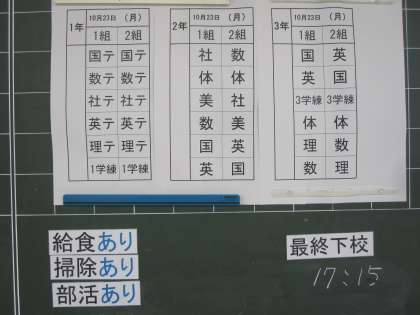 1年 10月23日 (月)
1組 2組
国テ 国テ
数テ 数テ
社テ 社テ
英テ 英テ
理テ 理テ
1学練 1学練
2年 10月23日 (月)
1組 2組
社 数
体 体
美 社
数 美
国 英
英 国
3年 10月23日 (月)
1組 2組
国 英
英 国
3学練 3学練
体 体
理 数
数 理
給食あり
掃除あり
部活あり
最終下校
17:15